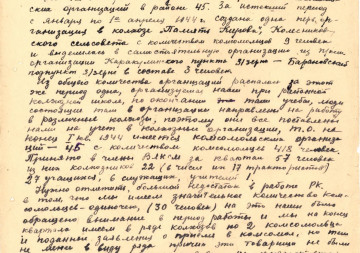 ских организаций в районе 45. За истекший период
с января по 1ое апреля 1944 г. создана одна перв. ор-
ганизация в колхозе Памяти Кирова Колесников-
ского сельсовета с количеством комсомольцев 9 человек
и выделилась в самостоятельную организацию из перв.
организации Каракулинского пункта З/зерно - Барановский
подпункт З/зерно в составе 3 человек.
Из общего количества организаций распалась за этот
же период одна, организуемая нами при районной
колхозной школе, по окончании учебы, люди
состоявшие там в организации направлены на работу
в различные колхозы, поэтому они все поставлены
нами на учет в колхозные организации, т.о. на
конец I кв. 1944 имеется комсомольских организа-
ций - 45 с количеством комсомольцев 418 человек
Принято в члены ВЛКСМ за квартал 57 человек
из них колхозников 22 (в числе их 17 трактористов)
27 учащихся, 6 служащих, учителей
Нужно отметить, большой недостаток в работе РК,
в том, что мы имеем значительное количество комсо-
мольцев-одиночек, (30 человек) на это нами было
обращено внимание в период работы и мы на конец
квартала имеем в ряде колхозов по 2 комсомольца
и поданы заявления о приеме в комсомол, но тем
не менее в виду ряда причин эти товарищи не были